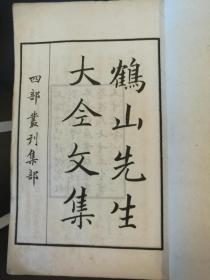 鶴山先生
大全文集
四部叢刊集部